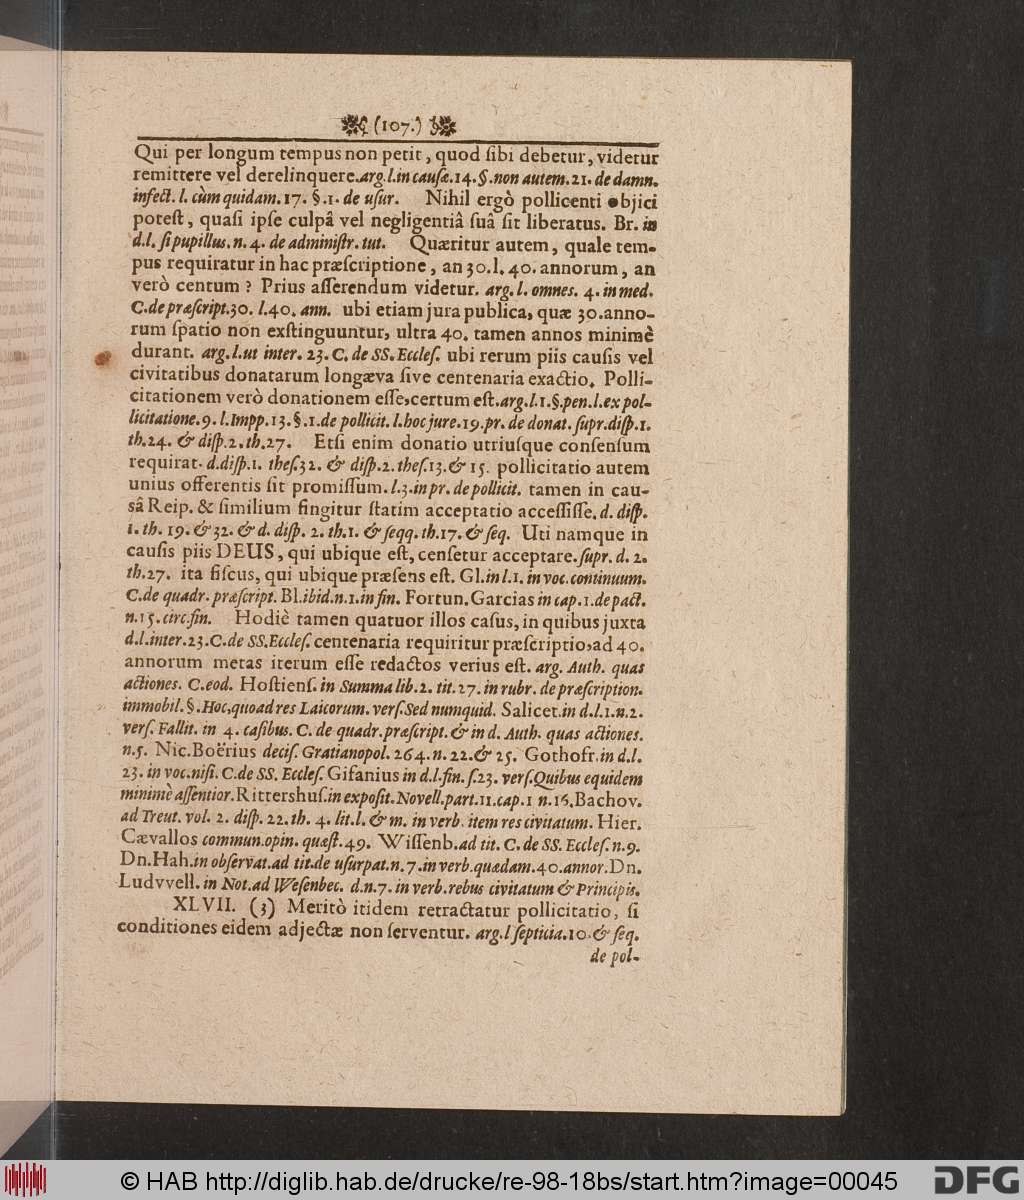 (107.)
Qui per longum tempus non petit, quod ſibi debetur, videtur
remittere vel derelinquere. arg. l. in cauſæ. 14. §. non autem. 21. de damn.
infect. l. cùm quidam. 17. §. 1. de uſur. Nihil ergò pollicenti objici
poteſt, quaſi ipſe culpâ vel negligentiâ ſuâ ſit liberatus. Br. in
d. l. ſi pupillus. n. 4. de adminiſtr. tut. Quæritur autem, quale tem-
pus requiratur in hac præſcriptione, an 30. l. 40. annorum, an
verò centum? Prius aſſerendum videtur. arg. l. omnes. 4. in med.
C. de præſcript. 30. l. 40. ann. ubi etiam jura publica, quæ 30. anno-
rum ſpatio non exſtinguuntur, ultra 40. tamen annos minimè
durant. arg. l. ut inter. 23. C. de SS. Eccleſ. ubi rerum piis cauſis vel
civitatibus donatarum longæva ſive centenaria exactio. Polli-
citationem verò donationem eſſe, certum eſt. arg. l. 1. §. pen. l. ex pol-
licitatione. 9. l. Impp. 13. §. 1. de pollicit. l. hoc jure. 19. pr. de donat. ſupr. diſp. 1.
th. 24. & diſp. 2. th. 27. Etſi enim donatio utriuſque conſenſum
requirat. d. diſp. 1. theſ. 32. & diſp. 2. theſ. 13. & 15. pollicitatio autem
unius offerentis ſit promiſſum. l. 3. in pr. de pollicit. tamen in cau-
sâ Reip. & ſimilium fingitur ſtatim acceptatio acceſſiſſe. d. diſp.
1. th. 19. & 32. & d. diſp. 2. th. 1. & ſeqq. th. 17. & ſeq. Uti namque in
cauſis piis DEUS, qui ubique eſt, cenſetur acceptare. ſupr. d. 2.
th. 27. ita fiſcus, qui ubique præſens eſt. Gl. in l. 1. in voc. continuum.
C. de quadr. præſcript. Bl. ibid. n. 1. in fin. Fortun. Garcias in cap. 1. de pact.
n. 15. circ. fin. Hodiè tamen quatuor illos caſus, in quibus juxta
d. l. inter. 23. C. de SS. Eccleſ. centenaria requiritur præſcriptio, ad 40.
annorum metas iterum eſſe redactos verius eſt. arg. Auth. quas
actiones. C. eod. Hoſtienſ. in Summa lib. 2. tit. 27. in rubr. de præſcription.
immobil. §. Hoc, quoad res Laicorum. verſ. Sed numquid. Salicet. in d. l. 1. n. 2.
verſ. Fallit. in 4. caſibus. C. de quadr. præſcript. & in d. Auth. quas actiones.
n. 5. Nic. Boërius deciſ. Gratianopol. 264. n. 22. & 25. Gothofr. in d. l.
23. in voc. niſi. C. de SS. Eccleſ. Gifanius in d. l. fin. ſ. 23. verſ. Quibus equidem
minimè aſſentior. Rittershuſ. in expoſit. Novell. part. 11. cap. 1 n. 16. Bachov.
ad Treut. vol. 2. diſp. 22. th. 4. lit. l. & m. in verb. item res civitatum. Hier.
Cævallos commun. opin. quæſt. 49. Wiſſenb. ad tit. C. de SS. Eccleſ. n. 9.
Dn. Hah. in obſervat. ad tit. de uſurpat. n. 7. in verb. quædam. 40. annor. Dn.
Ludvvell. in Not. ad Weſenbec. d. n. 7. in verb. rebus civitatum & Principis.
XLVII. (3) Meritò itidem retractatur pollicitatio, ſi
conditiones eidem adjectæ non ſerventur. arg. l ſepticia. 10. & ſeq.
de pol-
© HAB http://diglib.hab.de/drucke/re-98-18bs/start.htm?image=00045
DFG